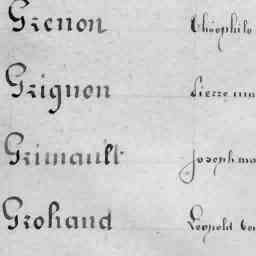 Grenon Théophile
Grignon Pierre
Grimault Joseph
Grohand Léopold